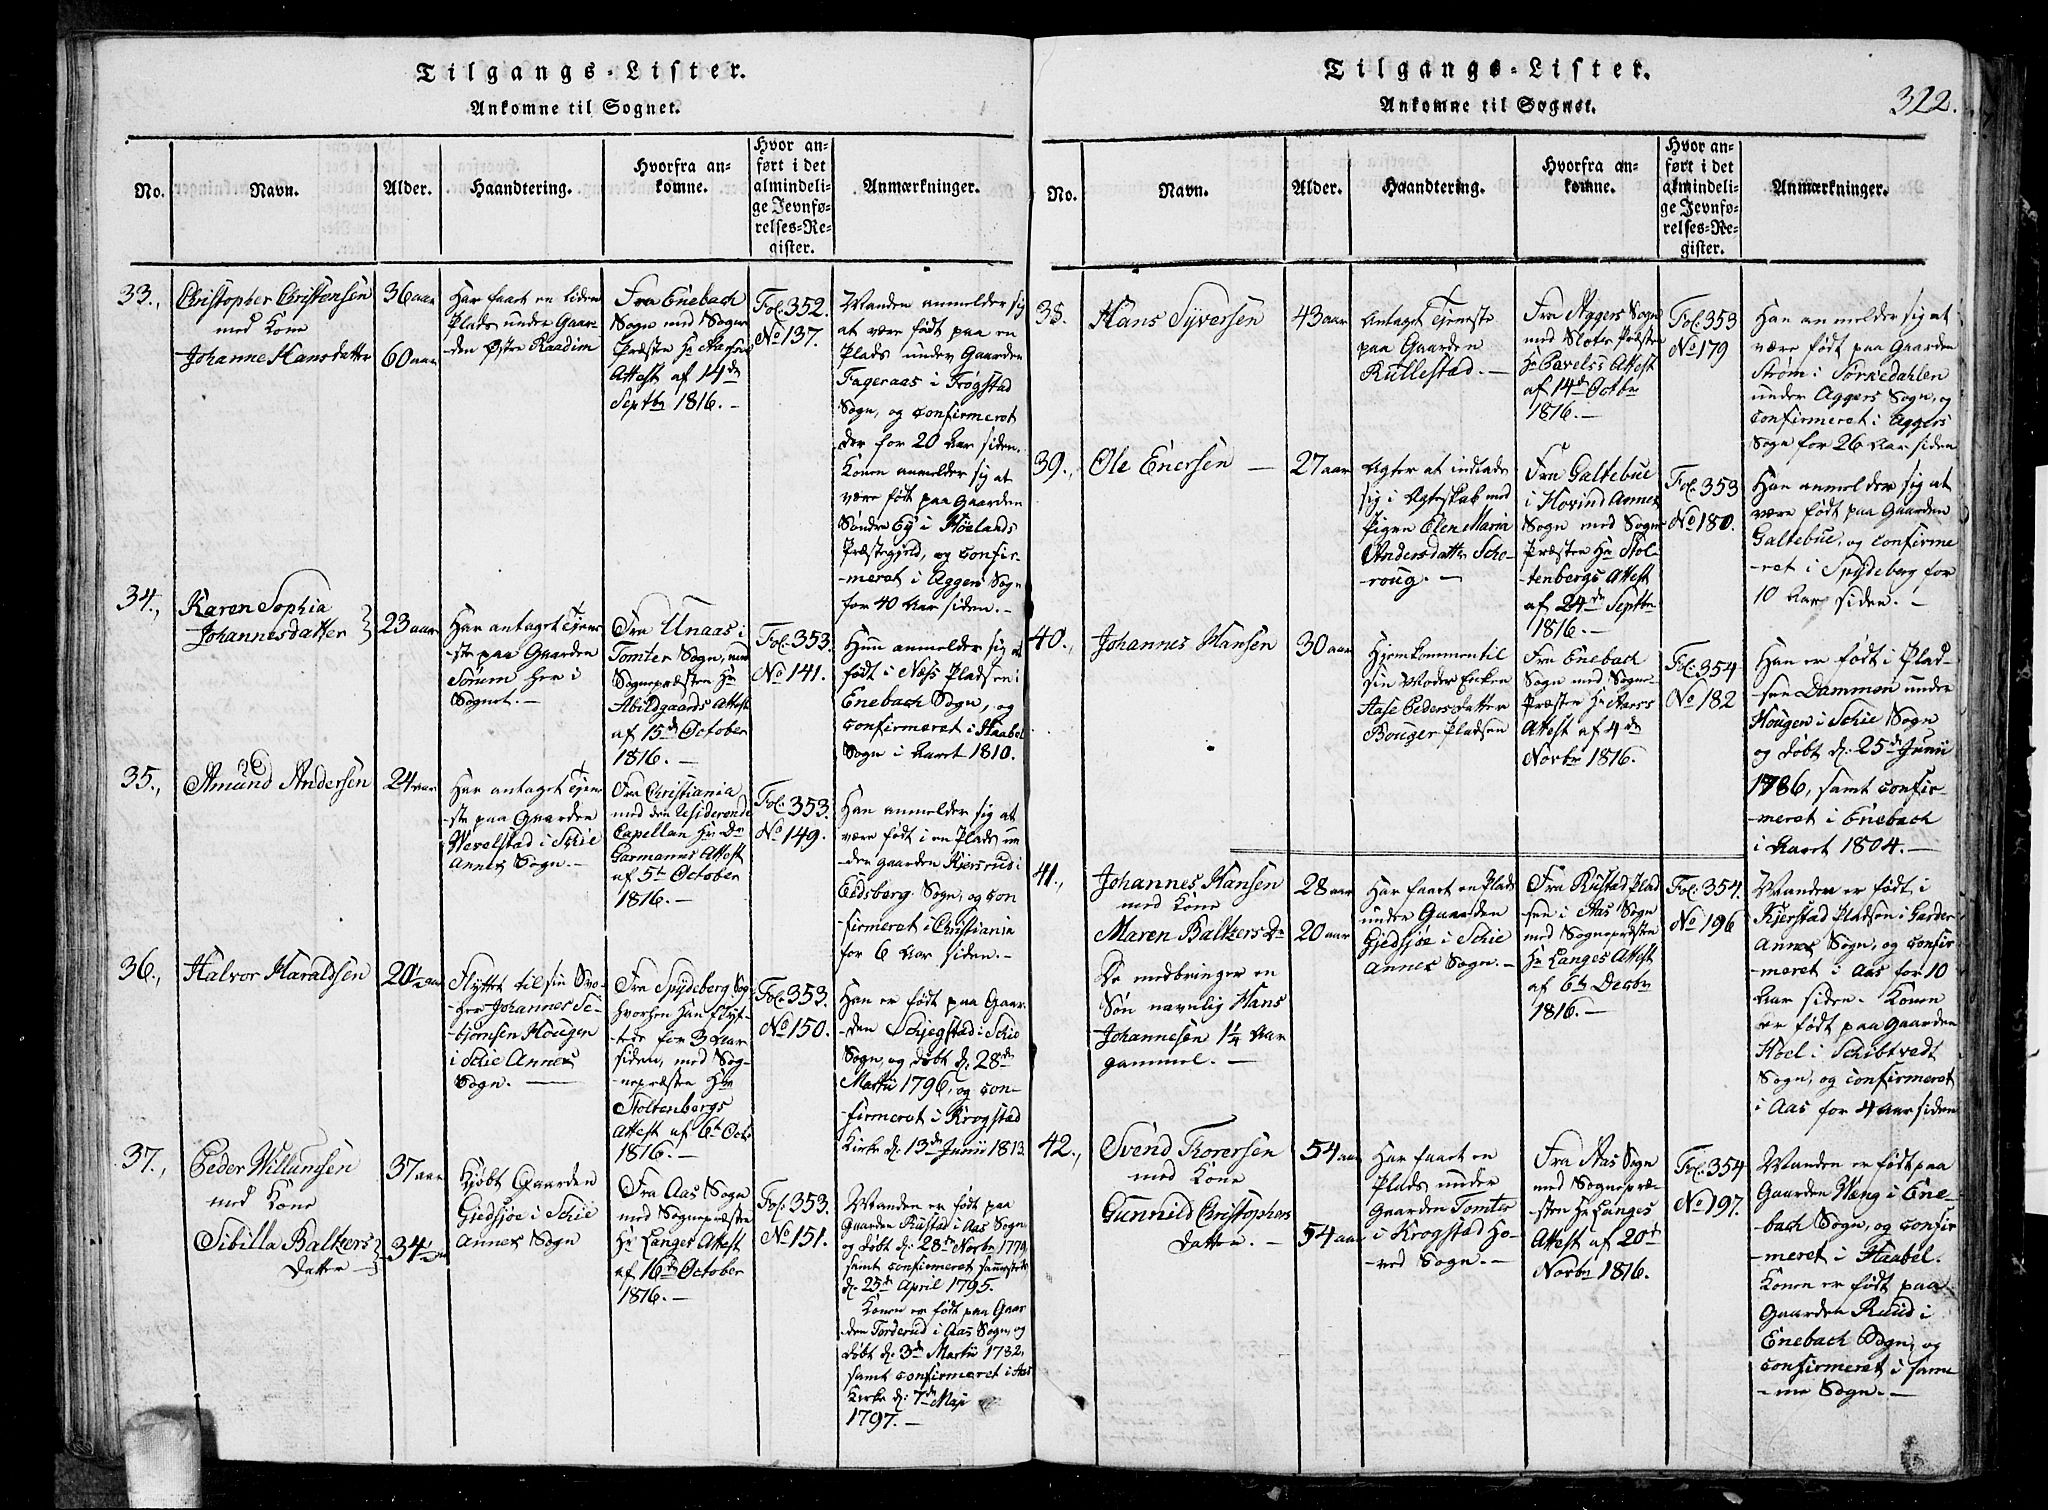 Tilgangs-Lister.
Ankomne til Sognet.
No.
Navn.
Alder.
Haandtering.
Hvorfra an-
komne.
Hvor an-
ført i det
almindeli-
ge Jevnfø-
relses-Re-
gister.
Anmærkninger.
33.,
Christopher Christensen
med Kone
Johanne Hansdatter
36 aar
60 aar
Har faaet en liden
Plads under Gaar-
den Østre Raadim
Fra Enebach
Sogn med Sogne
Præsten Hr Aarsen
Attest af 14de
Septbr 1816. –
Fol: 352.
No 137.
Manden anmelder sig
at være født paa en
Plads under Gaarden
Fageraas i Trøgstad
Sogn, og confirmeret
der for 20 Aar siden.
Konen anmelder sig at
være født paa Gaarden
Søndre Ey i Høelands
Præstegjeld, og confir-
-meret i Aggers Sogn
for 40 Aar siden. –
34.,
Karen Sophia
Johannesdatter
23 aar
Har antaget Tjene-
-ste paa Gaarden
Sørum her i
Sognet. –
Fra Unaas i
Tomter Sogn, med
Sognepræsten Hr
Abildgaards Attest
af 15de October
1816. –
Fol: 353.
No 141.
Hun anmelder sig at
født i Næs Pladsen i
Enebach Sogn, og
confirmeret i Haabel
Sogn i Aaret 1810. –
35.,
Amund Andersen
24 aar
Har antaget Tjene-
-ste paa Gaarden
Wevelstad i Schie
Annex Sogn. –
Fra Christiania
med den residerende
Capellan Hr Dr
Garmanns Attest
af 5te October
1816. –
Fol: 353.
No 149.
Han anmelder sig at
være født i en Plads un
-der gaarden Kjersrud i
Eidsberg Sogn, og con
-firmeret i Christiania
for 6 Aar siden. –
36.,
Halvor Haraldsen
20½ aar
Flyttet til sin Svo-
-ger Johannes Si-
-bjørnsen Hougen
i Schie Annex
Sogn. –
Fra Spydeberg Sog
hvorhen han flyt-
tede for 3 Aar
siden, med Sog-
-nepræsten Hr
Stoltenbergs
Attest af 6te Octr
1816. –
Fol: 353.
No 150.
Han er født paa Gaar-
-den Schiegstad i Schie
Sogn, og døbt d: 28de
Martii 1796, og con-
-firmeret i Krogstad
Kirke d: 13de Junii 1813.
37.,
Peder Willumsen
med Kone
Sibilla Baltzers
Datter –
37 aar
34½ aar
Kjøbt Gaarden
Giedsjøe i Schie
Annex Sogn
Fra Aas Sogn
med Sognepræsten
Hr Langes Attest
af 16de October
1816. –
Fol: 353.
No 151.
Manden er født paa
Gaarden Rustad i Aas Sogn,
og døbt d: 28de Novbr 1779,
samt confirmeret sammesteds
d: 25de April 1795.
Konen er født paa Gaar
-den Torderud i Aas Sogn, og
døbt d: 3de Martii 1782,
samt confirmeret i Aas
Kirke d: 7de Maji
1797. –
Tilgangs-Lister.
Ankomne til Sognet.
322.
No.
Navn.
Alder.
Haandtering.
Hvorfra an-
komne.
Hvor an-
ført i det
almindeli-
ge Jevnfø-
relses-Re-
gister.
Anmærkninger.
38.
Hans Syversen
43 aar
Antaget Tjeneste
paa Gaarden
Kullestad. –
Fra Aggers Sogn
med Slots Præsten
Hr Pavelss Attest
af 14de Octbr
1816. –
Fol: 353
No 179
Han anmelder sig at
være født paa Gaarden
Strøm i Sørkedahlen
under Aggers Sogn, og
confirmeret i Aggers
Sogn for 26 Aar siden
39.,
Ole Enersen –
27 aar
Agter at indtræde
sig i Ægteskab med
Pigen Elen Maria
Andersdatter Scho-
-roug. –
Fra Galtebue
i Hovind Annex
Sogn med Sogne
Præsten Hr Stol-
-tenbergs Attest
af 24de Septbr
1816. –
Fol: 353
No 180.
Han anmelder sig at
være født paa Gaarden
Galtebue, og confirme
-ret i Spydeberg for
10 Aar siden. –
40.,
Johannes Hansen
30 aar
Hjemkommen til
sin Moder Enken
Aase Pedersdatter
Bouger Pladsen
Fra Enebach
Sogn med Sogne-
Præsten Hr Aarss
Attest af 4de
Novbr 1816.
Fol: 354
No 182
Han er født i Plad-
-sen Dammen under
Hougen i Schie Sogn
og døbt d: 25de Junii
1786, samt confir-
-meret i Enebach
i Aaret 1804. –
41.,
Johannes Hansen
med Kone
Maren Baltzers Dr
De medbringer en
Søn navnlig Hans
Johannesen 1¼ Aar
gammel. –
28 aar
20 aar
Har faaet en Plads
under Gaarden
Giedsjøe i Schie
Annex Sogn. –
Fra Rustad Plad
-sen i Aas Sogn
med Sognepræsten
Hr Langes Attest
af 6te Decbr
1816. –
Fol: 354.
No 196
Manden er født i
Kjerstad Pladsen i Garder
Annex Sogn, og confir
-meret i Aas for 10
Aar siden. – Konen
er født paa Gaarden
Hoel i Schibtvedt
Sogn, og confirmeret
i Aas for 4 Aar siden
42.,
Svend Torersen
med Kone
Gunhild Christophers
Datter. –
54 aar
54 aar
Har faaet en
Plads under
Gaarden Tomter
i Krogstad Ho-
-ved Sogn. –
Fra Aas Sogn
med Sognepræ-
-sten Hr Langes
Attest af 20de
Novbr 1816.
Fol: 354
No 197.
Manden er født paa
Gaarden Weng i Ene-
-bach Sogn, og confir
-meret i Haabel.
Konen er født paa
Gaarden Ruud i
Enebach Sogn, og
confirmeret i sam-
-me Sogn. –